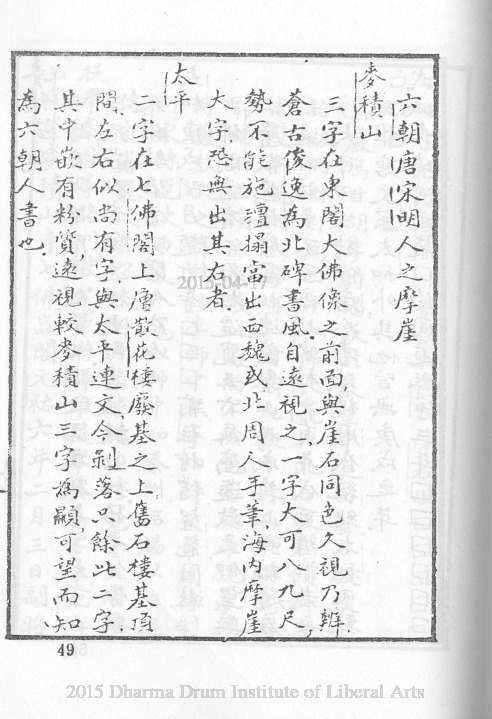 六朝唐宋明人之摩崖
麥積山
三字在東閣大佛像之前面,與崖石同色久視乃辨.
蒼古俊逸為北碑書風.自遠視之一字大可八九尺,
勢不能施氊搨當出西魏或北周人手筆海內摩崖
大字,恐無出其右者.
太平
二字在七佛閣上層散花樓廢基之上舊石樓基頂
間.左右似尚有字,與太平連文,今剝落只餘此二字.
其中嵌有粉質,遠視較麥積山三字為顯,可望而知
為六朝人書也.
2015-04-17
49
2015 Dharma Drum Institute of Liberal Arts